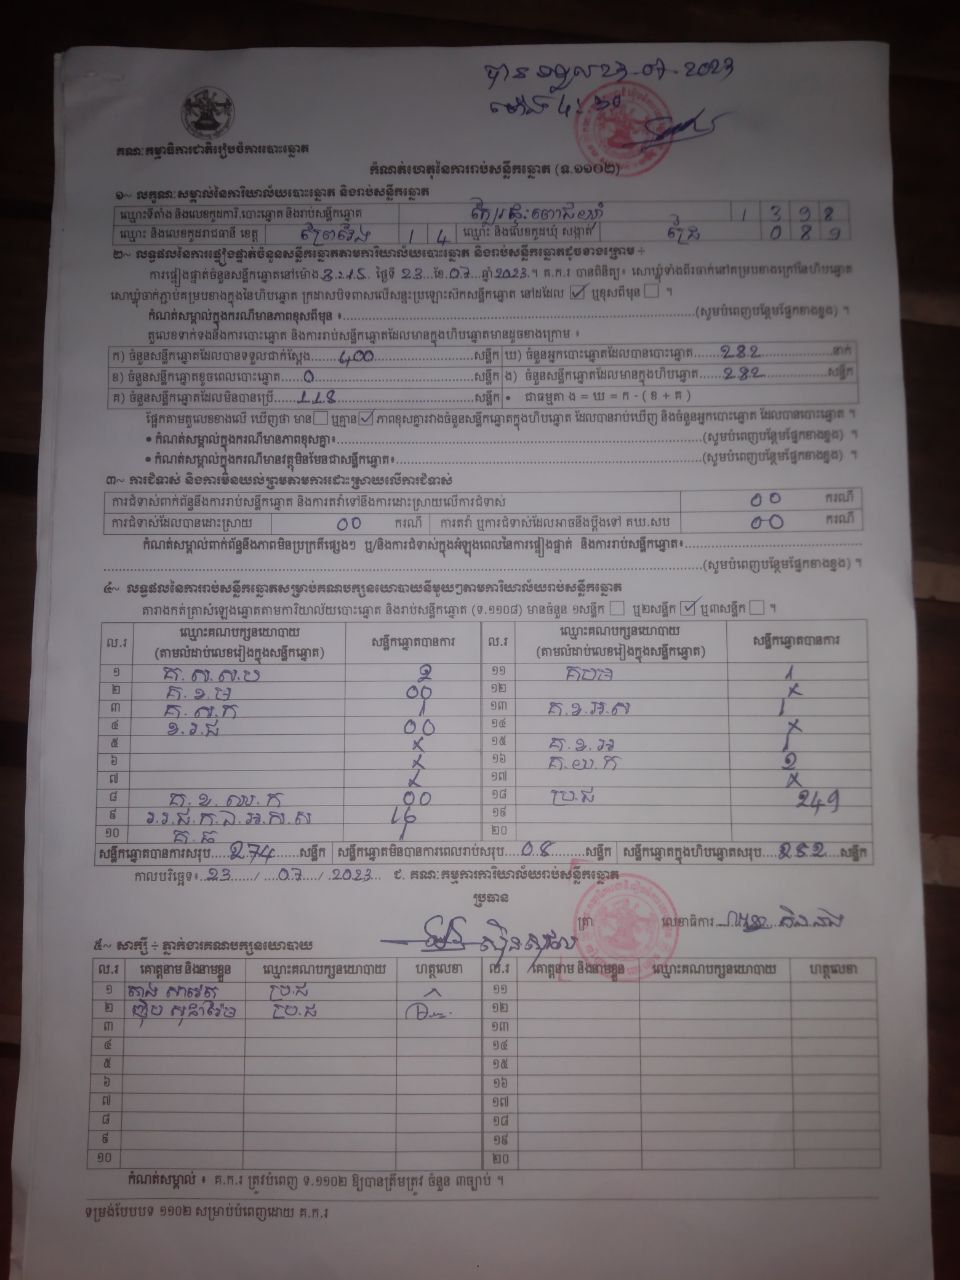 បានទទួល 23-07-2023
ម៉ោង 4:30
គណៈកម្មាធិការជាតិរៀបចំការបោះឆ្នោត
កំណត់ហេតុនៃការរាប់សន្លឹកឆ្នោត (ទ.១១០២)
១~ លក្ខណៈសម្គាល់នៃការិយាល័យបោះឆ្នោត និងរាប់សន្លឹកឆ្នោត
ឈ្មោះទីតាំង និងលេខកូដការិ.បោះឆ្នោត និងរាប់សន្លឹកឆ្នោត 1 3 9 8
ឈ្មោះ និងលេខកូដរាជធានី ខេត្ត ព្រៃវែង 1 4 ឈ្មោះ និងលេខកូដឃុំ សង្កាត់ ជ្រៃ 0 8 9
២~ លទ្ធផលនៃការផ្ទៀងផ្ទាត់ចំនួនសន្លឹកឆ្នោតតាមការិយាល័យបោះឆ្នោត និងរាប់សន្លឹកឆ្នោតដូចខាងក្រោម ÷
ការផ្ទៀងផ្ទាត់ចំនួនសន្លឹកឆ្នោតនៅម៉ោង 3:15 ថ្ងៃទី 23 ខែ 07 ឆ្នាំ 2023 ។ គ.ក.រ បានពិនិត្យ៖ សោឃ្លុំទាំងពីរចាក់នៅគម្របខាងក្រៅនៃហិបឆ្នោត
សោឃ្លុំចាក់ភ្ជាប់គម្របខាងក្នុងនៃហិបឆ្នោត ក្រដាសបិទពាសលើសន្ទះប្រឡោះស៊កសន្លឹកឆ្នោត នៅដដែល ☑ ឬខុសពីមុន ☐ ។
កំណត់សម្គាល់ក្នុងករណីមានភាពខុសពីមុន ៖ (សូមបំពេញបន្ថែមផ្នែកខាងខ្នង) ។
តួលេខទាក់ទងនឹងការបោះឆ្នោត និងការរាប់សន្លឹកឆ្នោតដែលមានក្នុងហិបឆ្នោតមានដូចខាងក្រោម ៖
ក) ចំនួនសន្លឹកឆ្នោតដែលបានទទួលជាក់ស្តែង 400 សន្លឹក ឃ) ចំនួនអ្នកបោះឆ្នោតដែលបានបោះឆ្នោត 282 នាក់
ខ) ចំនួនសន្លឹកឆ្នោតខូចពេលបោះឆ្នោត 0 សន្លឹក ង) ចំនួនសន្លឹកឆ្នោតដែលមានក្នុងហិបឆ្នោត 282 សន្លឹក
គ) ចំនួនសន្លឹកឆ្នោតដែលមិនបានប្រើ 118 សន្លឹក • ជាធម្មតា ង = ឃ = ក - ( ខ + គ )
ផ្អែកតាមតួលេខខាងលើ ឃើញថា មាន ☐ ឬគ្មាន ☑ ភាពខុសគ្នារវាងចំនួនសន្លឹកឆ្នោតក្នុងហិបឆ្នោត ដែលបានរាប់ឃើញ និងចំនួនអ្នកបោះឆ្នោត ដែលបានបោះឆ្នោត ។
• កំណត់សម្គាល់ក្នុងករណីមានភាពខុសគ្នា៖ (សូមបំពេញបន្ថែមផ្នែកខាងខ្នង) ។
• កំណត់សម្គាល់ក្នុងករណីមានវត្ថុមិនមែនជាសន្លឹកឆ្នោត៖ (សូមបំពេញបន្ថែមផ្នែកខាងខ្នង) ។
៣~ ការជំទាស់ និងការមិនយល់ព្រមតាមការដោះស្រាយលើការជំទាស់
ការជំទាស់ពាក់ព័ន្ធនឹងការរាប់សន្លឹកឆ្នោត និងការតវ៉ាទៅនឹងការដោះស្រាយលើការជំទាស់ 00 ករណី
ការជំទាស់ដែលបានដោះស្រាយ 00 ករណី ការតវ៉ា ឬការជំទាស់ដែលអាចនឹងប្តឹងទៅ គឃ.សប 00 ករណី
កំណត់សម្គាល់ពាក់ព័ន្ធនឹងភាពមិនប្រក្រតីផ្សេងៗ ឬ/និងការជំទាស់ក្នុងអំឡុងពេលនៃការផ្ទៀងផ្ទាត់ និងការរាប់សន្លឹកឆ្នោត៖
(សូមបំពេញបន្ថែមផ្នែកខាងខ្នង) ។
៤~ លទ្ធផលនៃការរាប់សន្លឹកឆ្នោតសម្រាប់គណបក្សនយោបាយនីមួយៗតាមការិយាល័យរាប់សន្លឹកឆ្នោត
តារាងកត់ត្រាសំឡេងឆ្នោតតាមការិយាល័យបោះឆ្នោត និងរាប់សន្លឹកឆ្នោត (ទ.១១០៨) មានចំនួន ១សន្លឹក ☐ ឬ២សន្លឹក ☑ ឬ៣សន្លឹក ☐ ។
ល.រ ឈ្មោះគណបក្សនយោបាយ (តាមលំដាប់លេខរៀងក្នុងសន្លឹកឆ្នោត) សន្លឹកឆ្នោតបានការ ល.រ ឈ្មោះគណបក្សនយោបាយ (តាមលំដាប់លេខរៀងក្នុងសន្លឹកឆ្នោត) សន្លឹកឆ្នោតបានការ
១ គ.ស.ស.ប 2 ១១ គបម 1
២ គ.ខ.ម 00 ១២ x
៣ គ.ស.ក 1 ១៣ គ.ខ.អ.ស 1
៤ ខ.រ.ជ 00 ១៤ x
៥ x ១៥ គ.ខ.អ 1
៦ x ១៦ គ.យ.ក 2
៧ x ១៧ x
៨ គ.ខ.ឈ.ក 00 ១៨ ប្រ.ជ 249
៩ 16 ១៩
១០ គ.ធ 1 ២០
សន្លឹកឆ្នោតបានការសរុប 274 សន្លឹក សន្លឹកឆ្នោតមិនបានការពេលរាប់សរុប 08 សន្លឹក សន្លឹកឆ្នោតក្នុងហិបឆ្នោតសរុប 282 សន្លឹក
កាលបរិច្ឆេទ៖ 23 / 07 / 2023 ជ. គណៈកម្មការការិយាល័យរាប់សន្លឹកឆ្នោត
ប្រធាន
ត្រា លេខាធិការ
៥~ សាក្សី ÷ ភ្នាក់ងារគណបក្សនយោបាយ
ល.រ គោត្តនាម និងនាមខ្លួន ឈ្មោះគណបក្សនយោបាយ ហត្ថលេខា ល.រ គោត្តនាម និងនាមខ្លួន ឈ្មោះគណបក្សនយោបាយ ហត្ថលេខា
១ ប្រ.ជ ១១
២ ប្រ.ជ ១២
៣ ១៣
៤ ១៤
៥ ១៥
៦ ១៦
៧ ១៧
៨ ១៨
៩ ១៩
១០ ២០
កំណត់សម្គាល់ ៖ គ.ក.រ ត្រូវបំពេញ ទ.១១០២ ឱ្យបានត្រឹមត្រូវ ចំនួន ៣ច្បាប់ ។
ទម្រង់បែបបទ ១១០២ សម្រាប់បំពេញដោយ គ.ក.រ